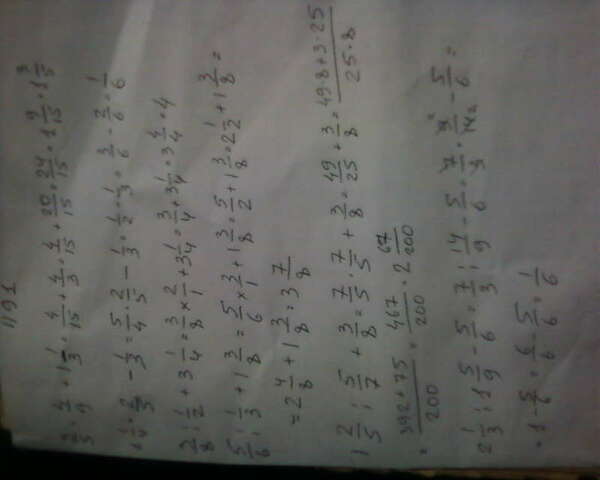 1191
2/5 · 4/9 + 1 1/3 = 4/15 + 4/3 = 4/15 + 20/15 = 24/15 = 1 9/15 = 1 3/5
1 1/4 · 2/5 - 1/3 = 5/4 · 2/5 - 1/3 = 1/2 - 1/3 = 3/6 - 2/6 = 1/6
3/8 : 1/2 + 3 1/4 = 3/8 × 2/1 + 3 1/4 = 3/4 + 3 1/4 = 3 4/4 = 4
5/6 : 1/3 + 1 3/8 = 5/6 × 3/1 + 1 3/8 = 5/2 + 1 3/8 = 2 1/2 + 1 3/8 =
= 2 4/8 + 1 3/8 = 3 7/8
1 2/5 : 5/7 + 3/8 = 7/5 · 7/5 + 3/8 = 49/25 + 3/8 = 49·8+3·25/25·8
= 392+75/200 = 467/200 = 2 67/200
2 1/3 : 1 5/9 - 5/6 = 7/3 : 14/9 - 5/6 = 7/3 · 9/14 - 5/6 =
= 1 - 5/6 = 6/6 - 5/6 = 1/6